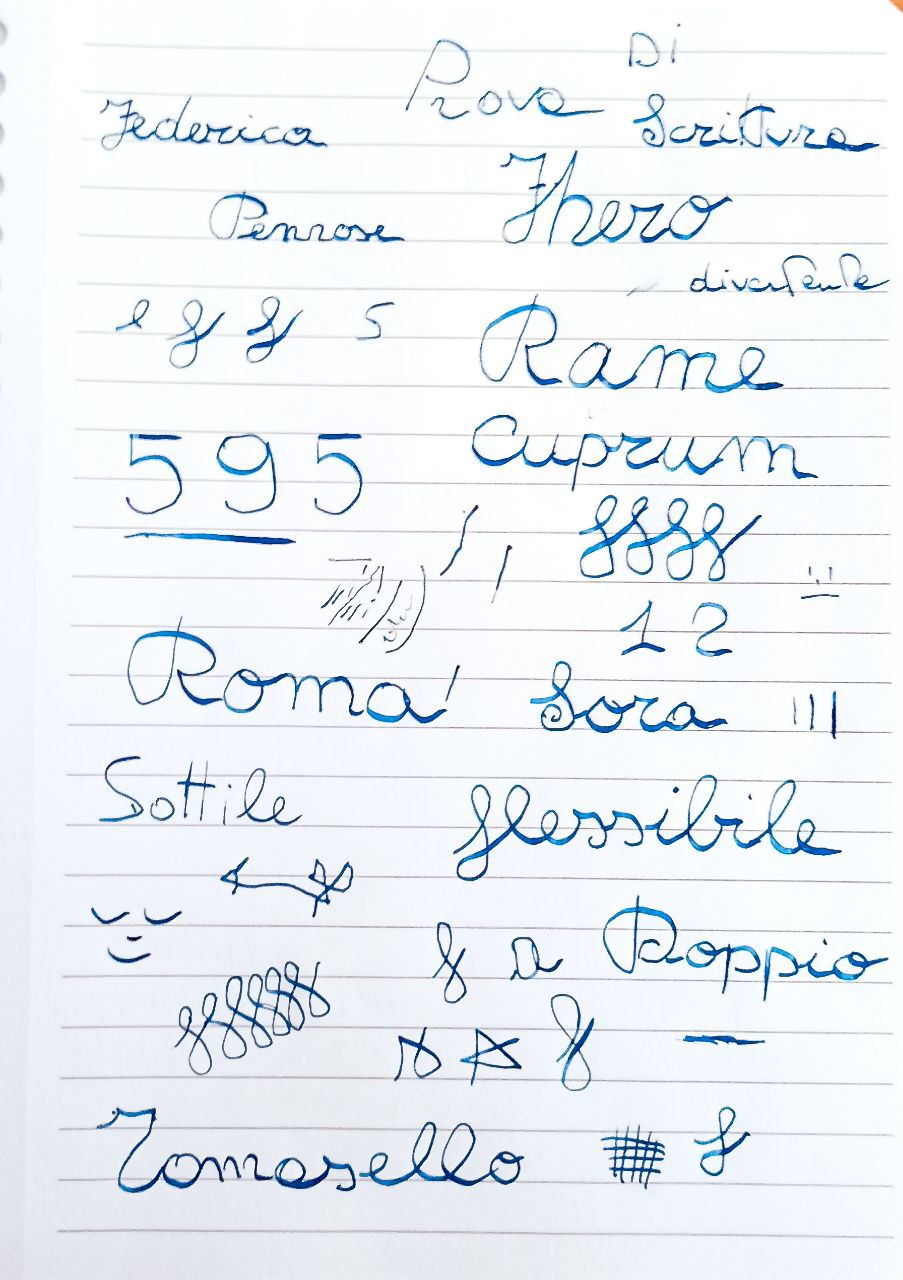 Prova Di
Federica Scrittura
Penrose Jhero
divertente
e f f s Rame
595 Cuprum
ffff
12
Roma Sora
Sottile flessibile
f a Roppio
ffffff
f
Tomasello f